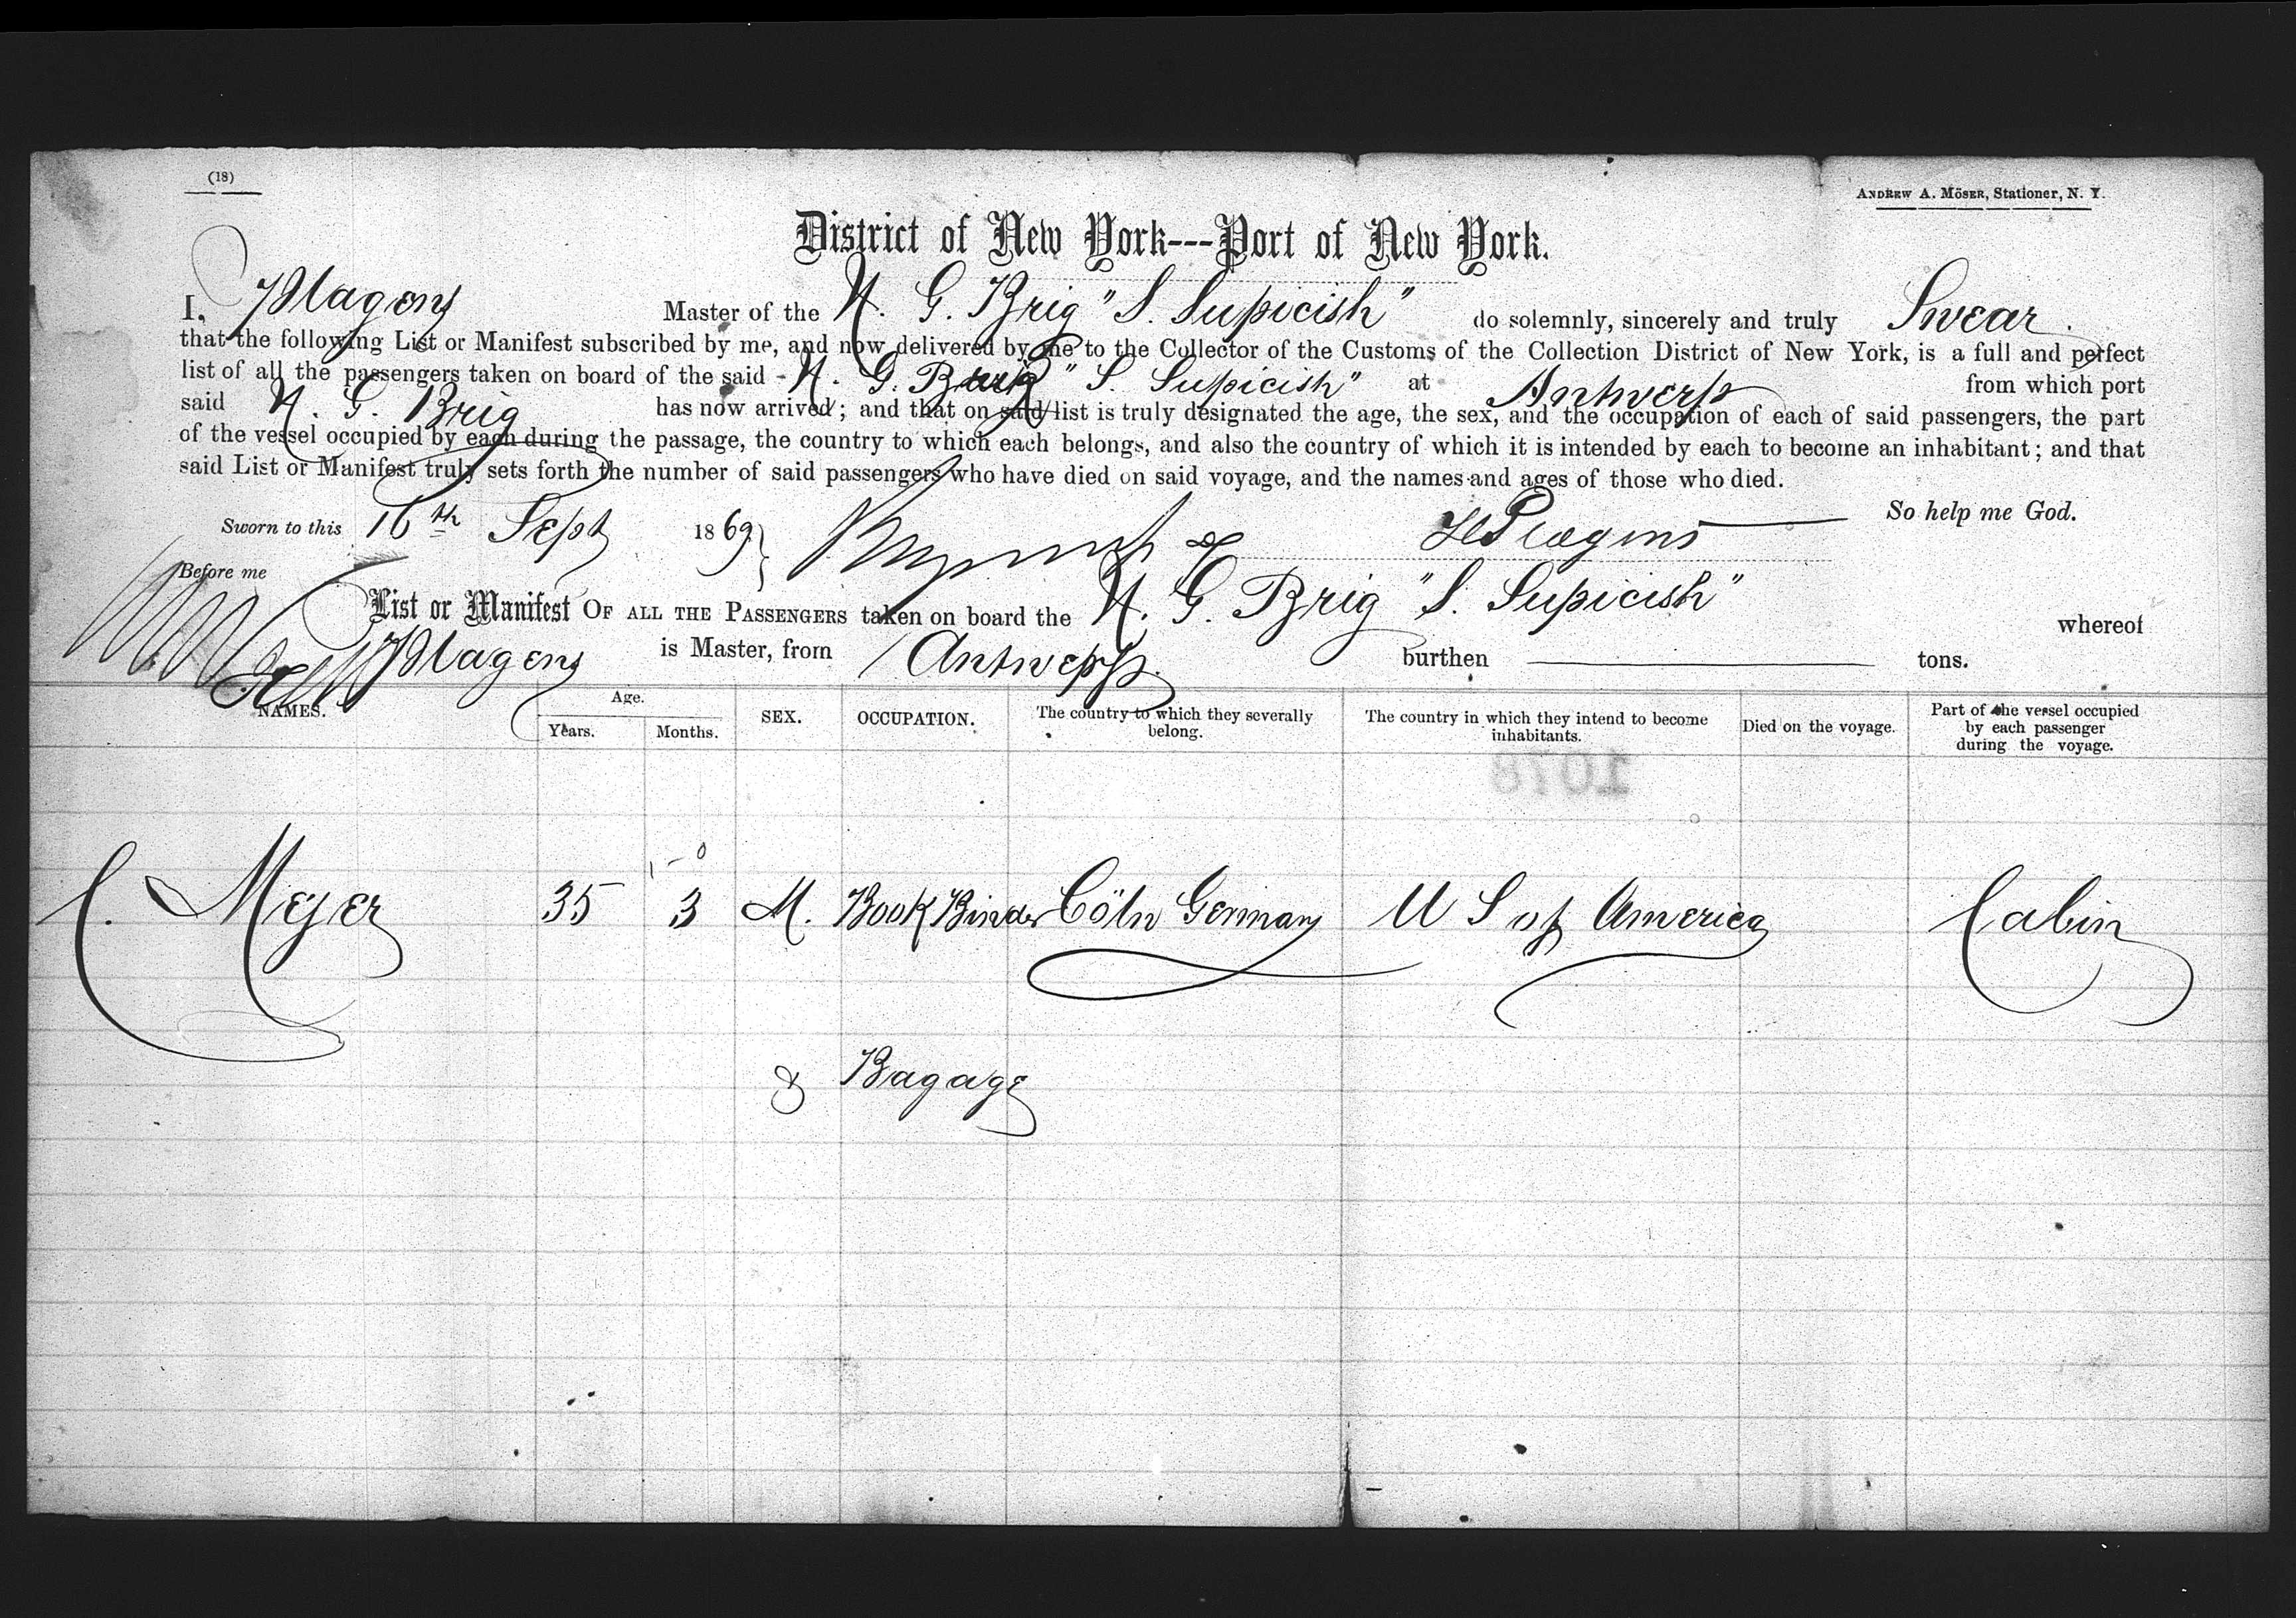 (18)
ANDREW A. MÖSER, Stationer, N. Y.
District of New York---Port of New York.
I, Plagens Master of the N. G. Brig "S. Supicish" do solemnly, sincerely and truly Swear.
that the following List or Manifest subscribed by me, and now delivered by me to the Collector of the Customs of the Collection District of New York, is a full and perfect
list of all the passengers taken on board of the said N. G. Brig "S. Supicish" at Antwerp from which port
said N. G. Brig has now arrived; and that on said list is truly designated the age, the sex, and the occupation of each of said passengers, the part
of the vessel occupied by each during the passage, the country to which each belongs, and also the country of which it is intended by each to become an inhabitant; and that
said List or Manifest truly sets forth the number of said passengers who have died on said voyage, and the names and ages of those who died.
Sworn to this 16th Sept 1869 H Plagens So help me God.
Before me
List or Manifest OF ALL THE PASSENGERS taken on board the N. G. Brig "S. Supicish" whereof
Plagens is Master, from Antwerp. burthen tons.
NAMES. Age. Years. Months. SEX. OCCUPATION. The country to which they severally belong. The country in which they intend to become inhabitants. Died on the voyage. Part of the vessel occupied by each passenger during the voyage.
1078
C. Meyer 35 3 M. Book Binder Cöln Germany U S of America Cabin
& Bagage